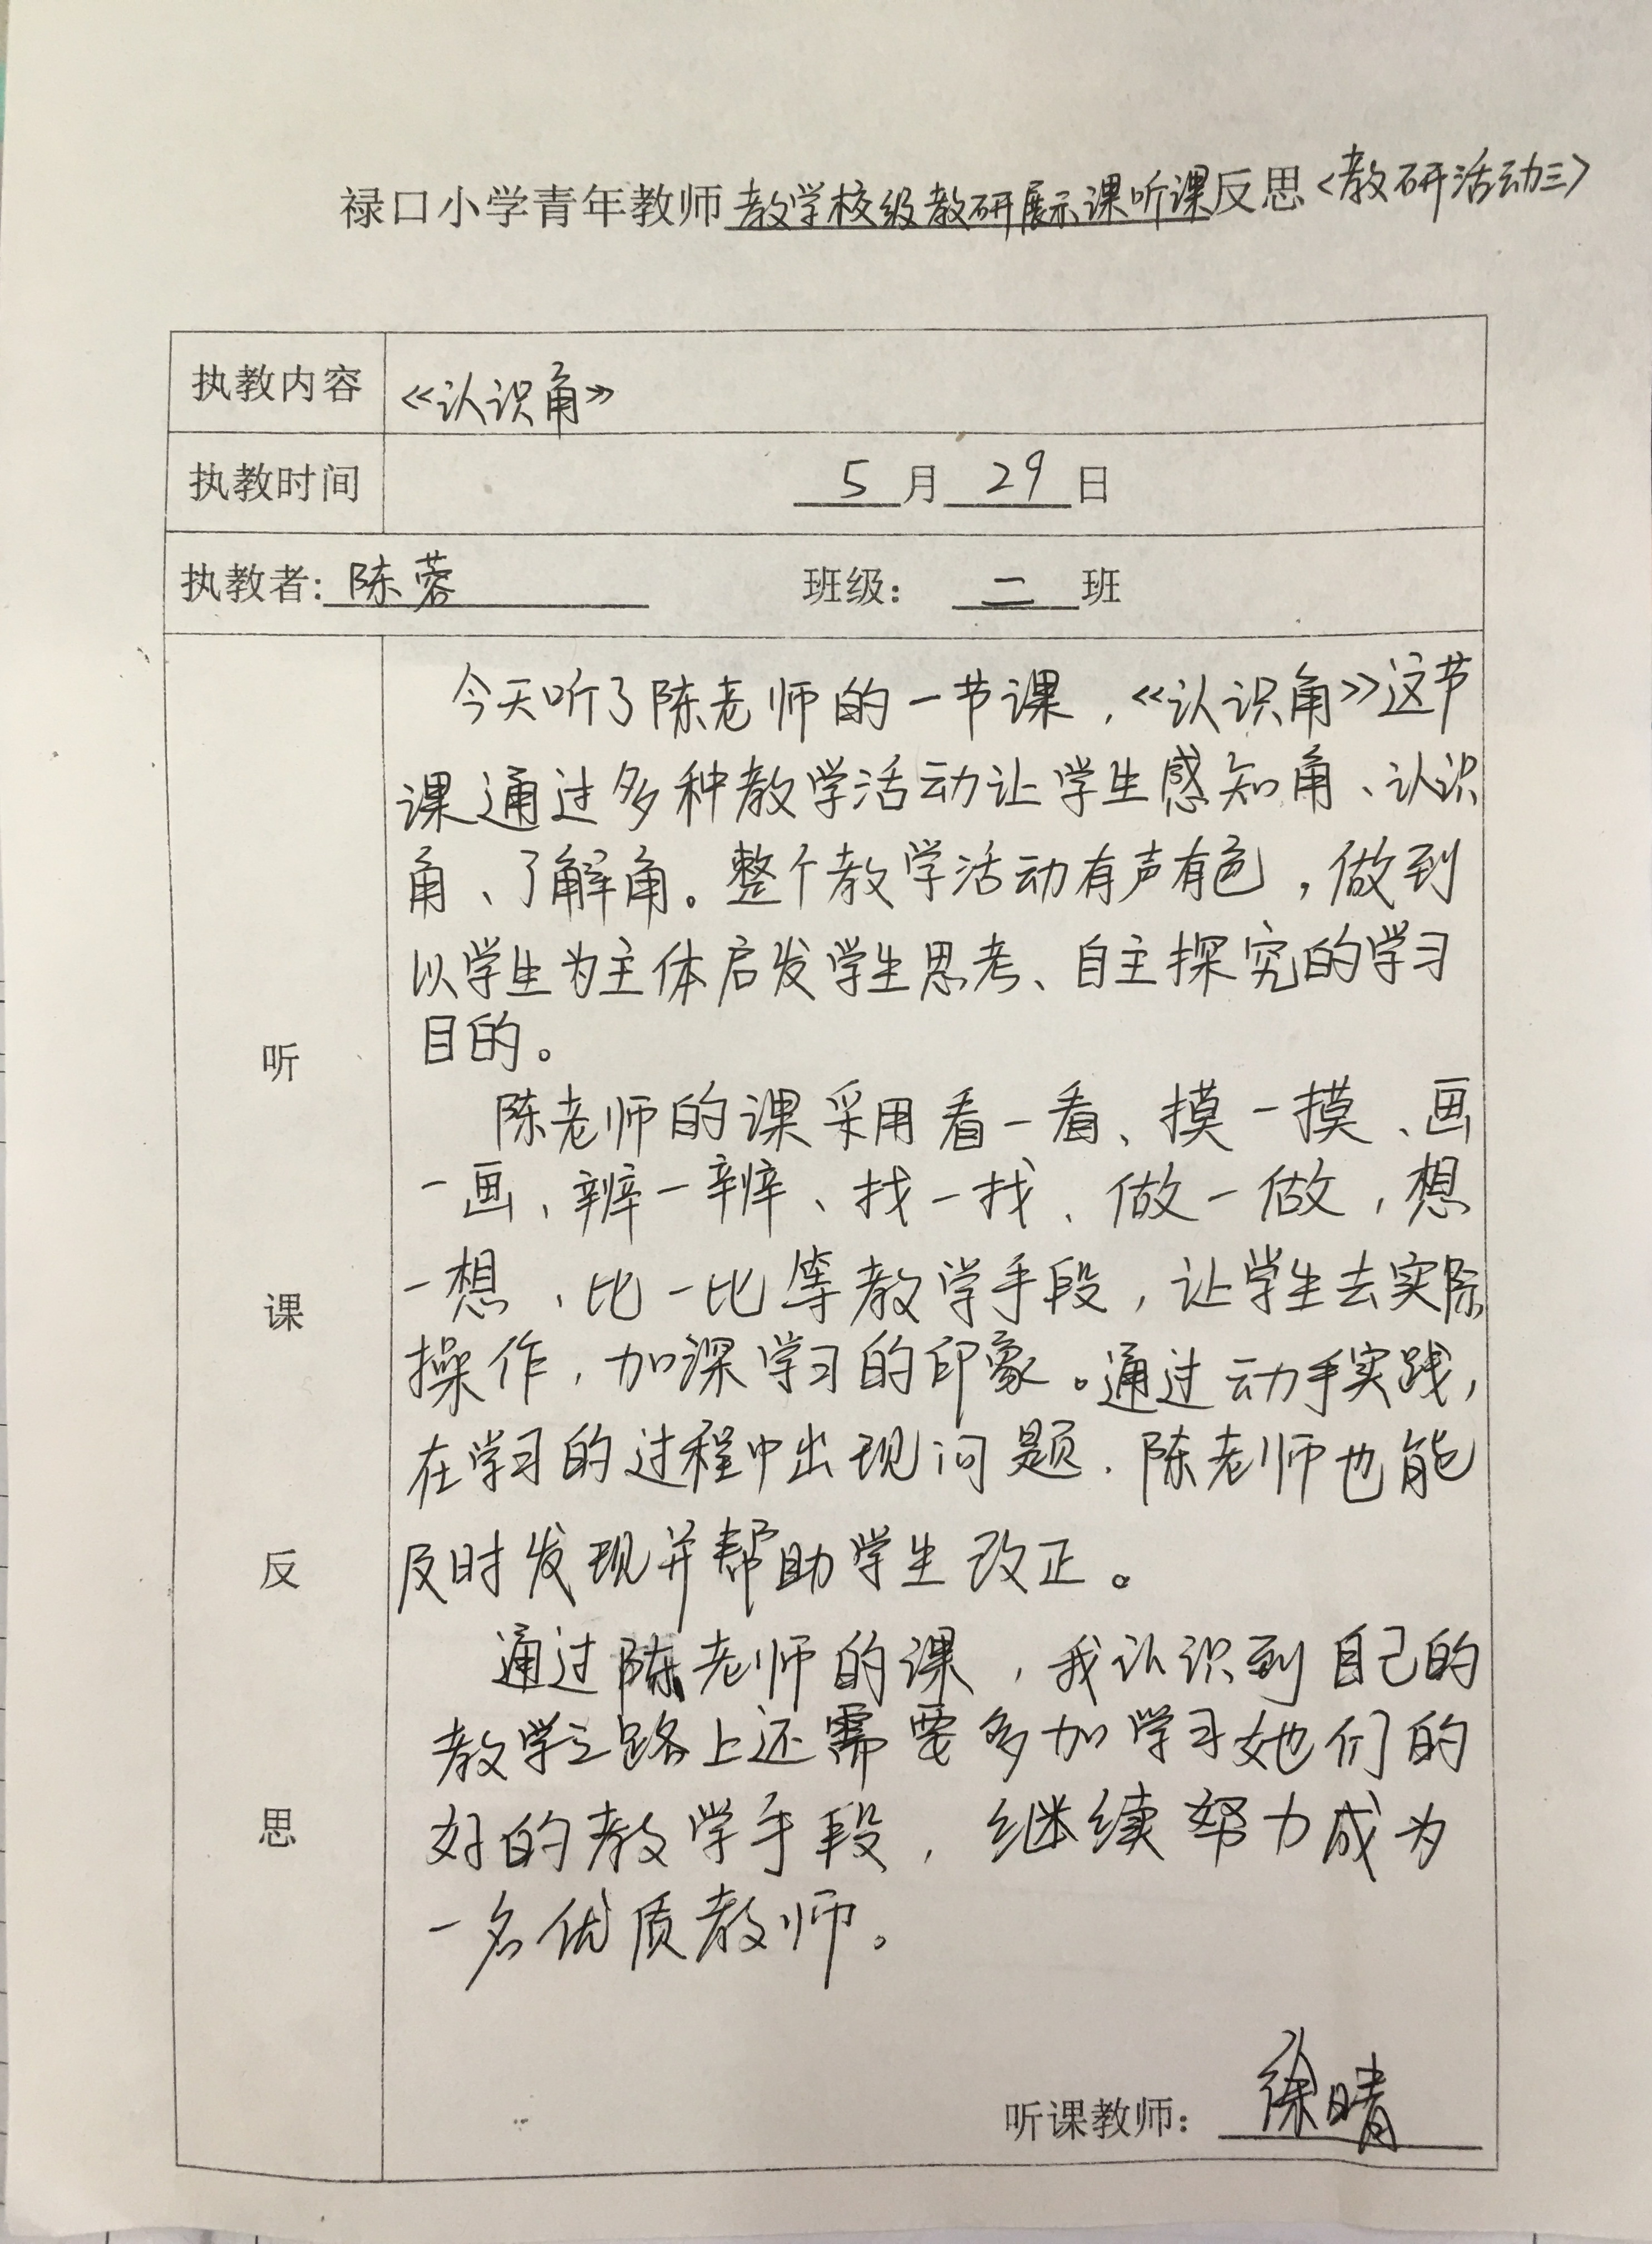 禄口小学青年教师教学校级教研展示课听课反思<教研活动三>
执教内容 《认识角》
执教时间 5月29日
执教者：陈蓉 班级：二班
听课反思
今天听了陈老师的一节课，《认识角》这节
课通过多种教学活动让学生感知角、认识
角、了解角。整个教学活动有声有色，做到
以学生为主体启发学生思考、自主探究的学习
目的。
陈老师的课采用看一看、摸一摸、画
一画、辨一辨、找一找、做一做，想
一想、比一比等教学手段，让学生去实际
操作，加深学习的印象。通过动手实践，
在学习的过程中出现问题，陈老师也能
及时发现并帮助学生改正。
通过陈老师的课，我认识到自己的
教学之路上还需要多加学习她们的
好的教学手段，继续努力成为
一名优质教师。
听课教师：徐晴